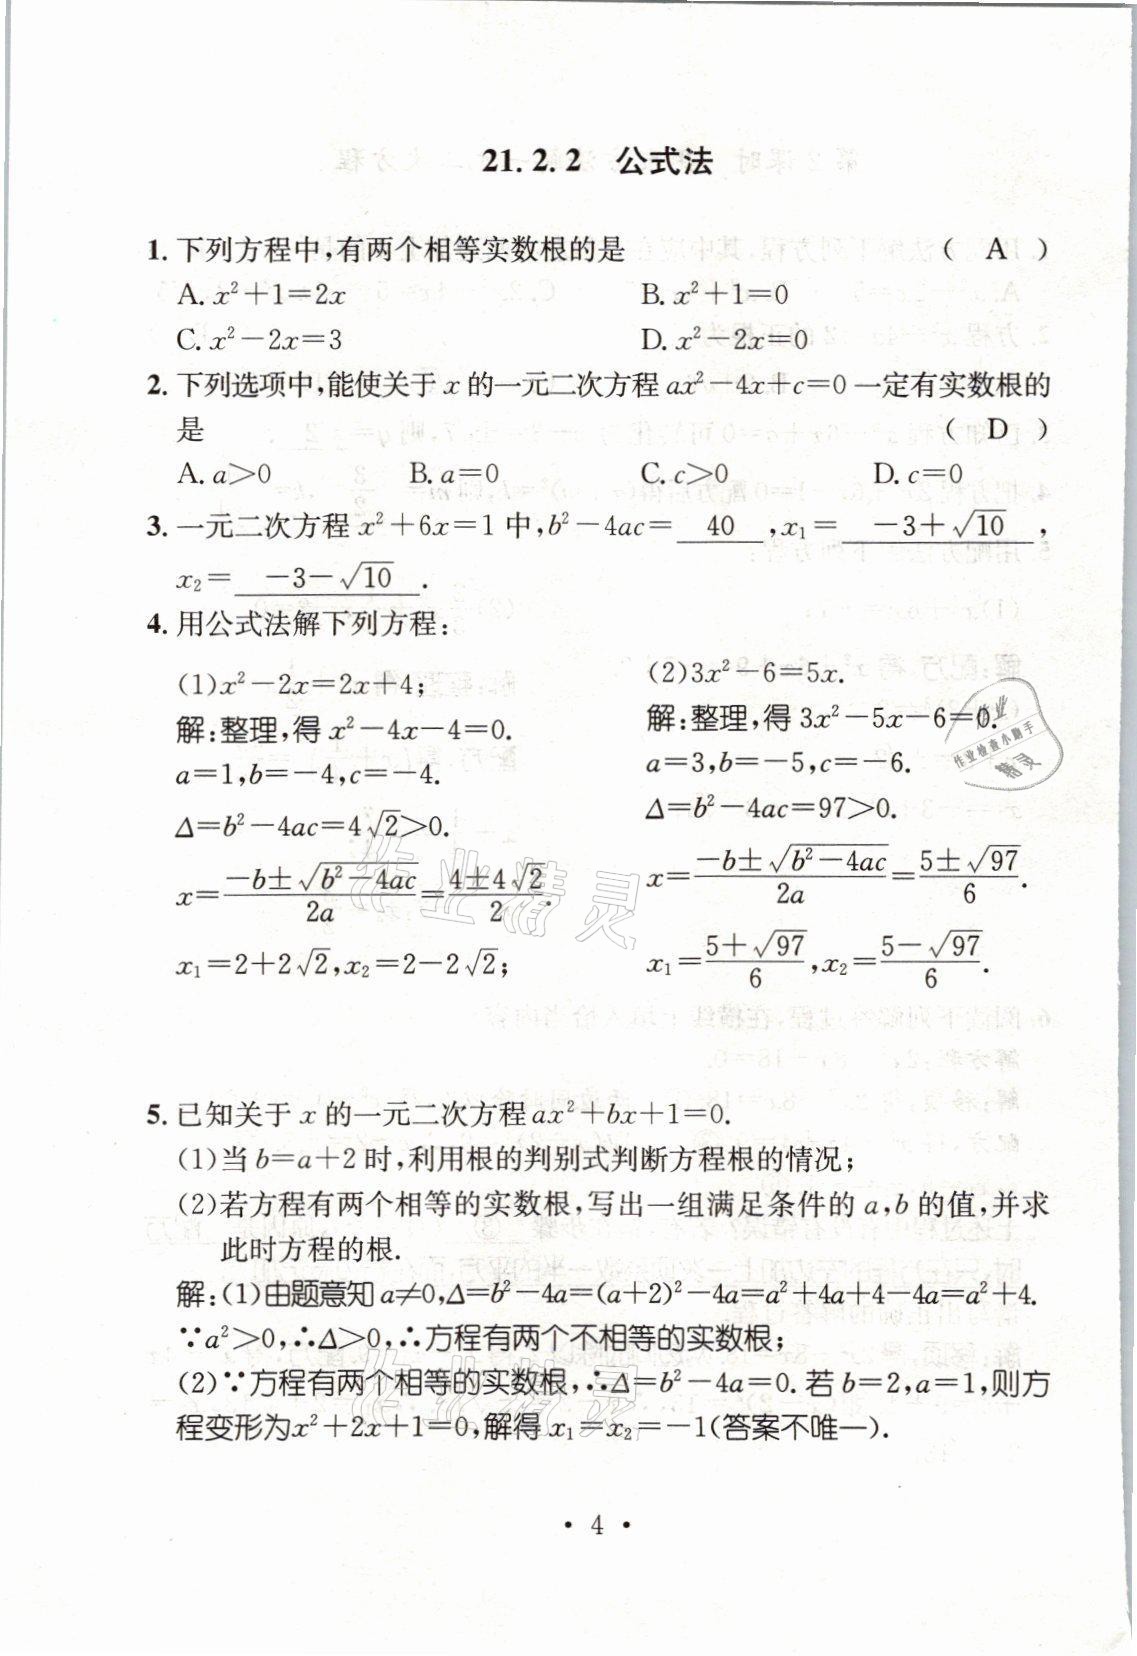 21.2.2 公式法
1. 下列方程中,有两个相等实数根的是 ( A )
A. x²+1=2x B. x²+1=0
C. x²-2x=3 D. x²-2x=0
2. 下列选项中,能使关于 x 的一元二次方程 ax²-4x+c=0 一定有实数根的
是 ( D )
A. a>0 B. a=0 C. c>0 D. c=0
3. 一元二次方程 x²+6x=1 中,b²-4ac= 40 ,x₁= -3+√10 ,
x₂= -3-√10 .
4. 用公式法解下列方程:
(1)x²-2x=2x+4;
解:整理,得 x²-4x-4=0.
a=1,b=-4,c=-4.
Δ=b²-4ac=4√2>0.
x=(-b±√(b²-4ac))/2a=(4±4√2)/2.
x₁=2+2√2,x₂=2-2√2;
(2)3x²-6=5x.
解:整理,得 3x²-5x-6=0.
a=3,b=-5,c=-6.
Δ=b²-4ac=97>0.
x=(-b±√(b²-4ac))/2a=(5±√97)/6.
x₁=(5+√97)/6,x₂=(5-√97)/6.
作业
作业检查小助手
精灵
作业精灵
5. 已知关于 x 的一元二次方程 ax²+bx+1=0.
(1)当 b=a+2 时,利用根的判别式判断方程根的情况;
(2)若方程有两个相等的实数根,写出一组满足条件的 a,b 的值,并求
此时方程的根.
解:(1)由题意知 a≠0,Δ=b²-4a=(a+2)²-4a=a²+4a+4-4a=a²+4.
∵a²>0,∴Δ>0,∴方程有两个不相等的实数根;
(2)∵方程有两个相等的实数根,∴Δ=b²-4a=0. 若 b=2,a=1,则方
程变形为x²+2x+1=0,解得 x₁=x₂=-1(答案不唯一).
作业精灵
· 4 ·